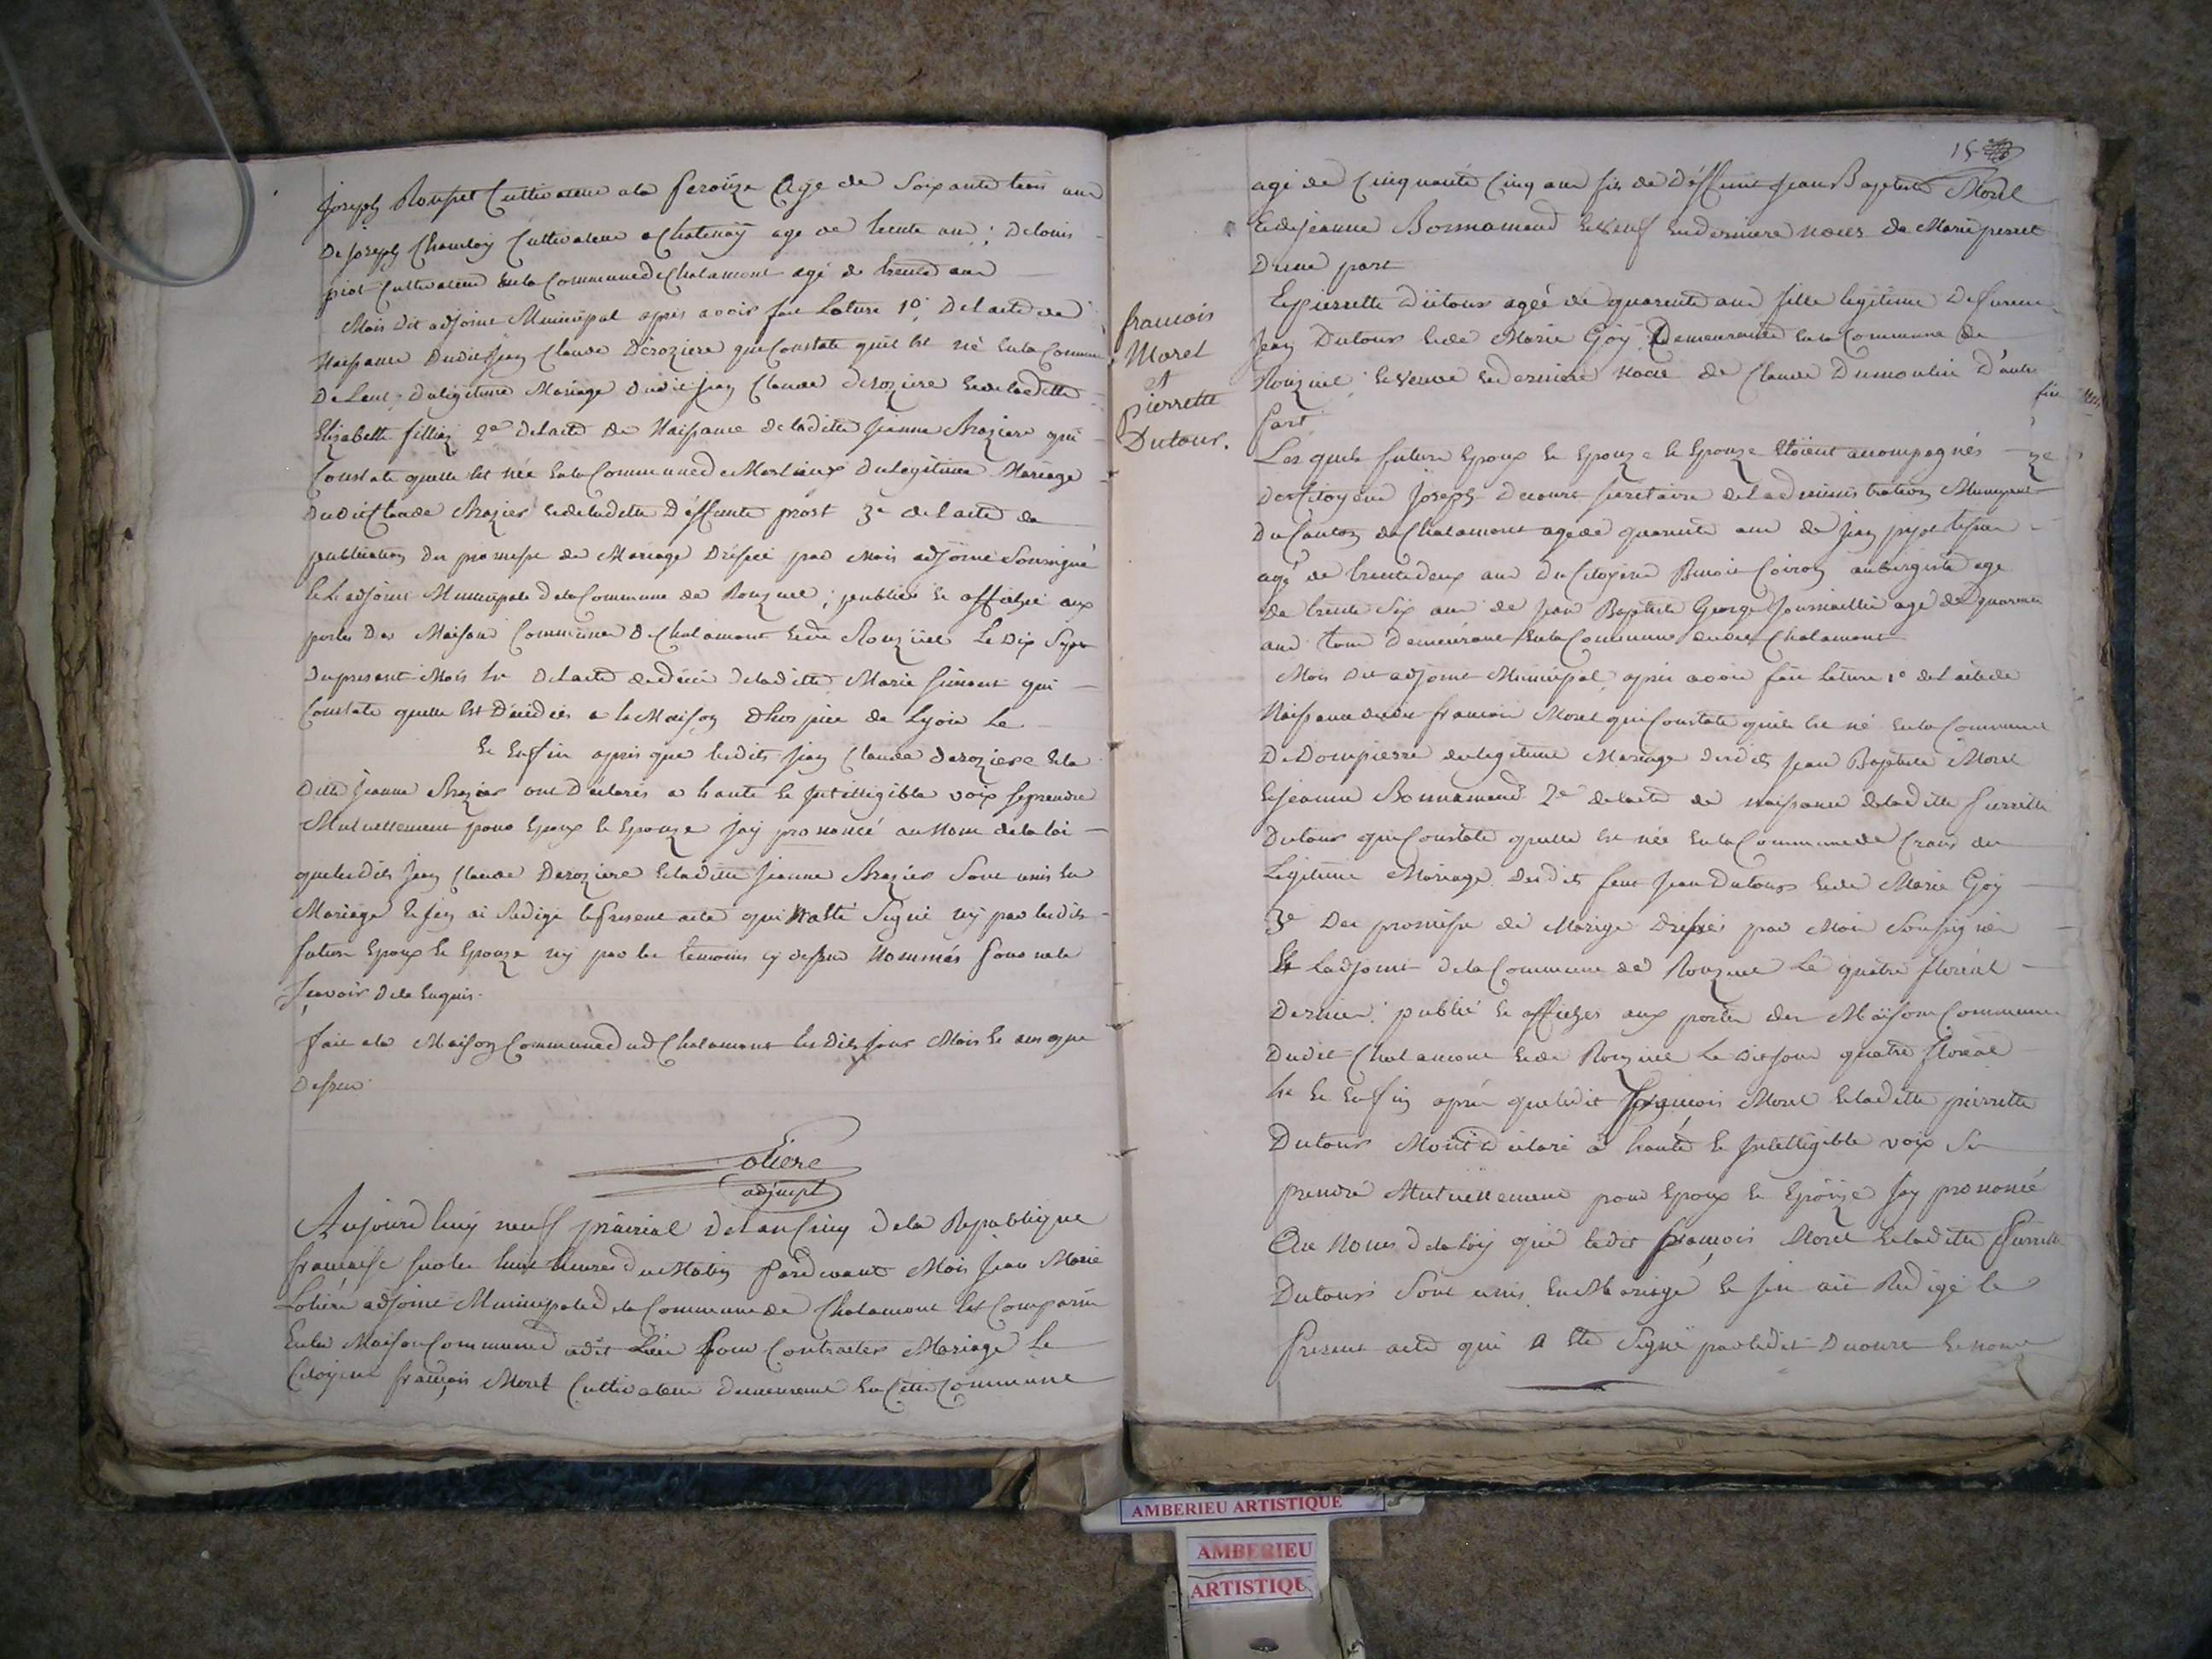 Joseph Roupet Cultivateur a la Perouze Age de Soixante trois ans
De Joseph Chambon Cultivateur a Chatenaÿ age de trente ans ; De louis
piot Cultivateur en la Commune de Chalamont agé de trente ans
Mois Dit adjoint Municipal apres avoir fait Lature 1o. De lacte de
Naissance Dudit Jean Claude Déroziere qui Constate quil est né en la Commune
De Lent, du legitime Mariage dudit Jean Claude derozière et de ladite
Elizabette fillion 2e de lacte de Naissance de ladite Jeanne Brazier qui
Constate quelle est née en la Commune de Marlieux du legitime Mariage
Dudit Claude Brazier et de ladette Déffunte prost 3e de lacte de
publication des promesse de Mariage Dréssée par Mois adjoint Sousigné
et ladjoint Municipale de la Commune de Ronzuel ; publiée et affichée aux
portes Des Maisons Communes De Chalamont et de Ronzüel Le Dix Sept
Du present Mois 4e De lacte de décès de ladite Marie Simont qui
Constate quelle Est Décédée a la Maison Dhospice de Lyon Le
Et Enfin apres que ledits Jean Claude deroziere et la
Ditte Jeanne Brazier ont Déclarés a haute et Intelligible voix se prendre
Mutuellement pour Epoux et Epouze Jaÿ prononcé au Nom de la loi
que ledits Jean Claude Deroziere et ladite Jeanne Brazier Sont unis en
Mariage et Jen ai Redigé le present acte qui Na Eté Signé nÿ par ledits
futurs Epoux et Epouze ny par les temoins cy dessus Nommés pour ne le
sçavoir de ce Enquis.
fait a la Maison Commune dud Chalamont les dits jour Mois et ans que
Dessus
Loliere
adjoint
Aujourdhuy neuf prairial De lan Cinq De la Republique
francaise sur les huit heures du Matin pardevant Mois Jean Marie
Loliére adjoint Municipale de la Commune de Chalamont Est Comparue
En la Maison Commune dudit Lieu pour Contracter Mariage le
Citoyens françois Morel Cultivateur demeurent en Cette Commune
francois
Morel
et
pierrette
Dutour.
15
agé de Cinquante Cinq ans fils de Déffunt Jean Baptiste Morel
Et de Jeanne Bonnamend Et veuf en derniere noces de Marie perret
D'une part
Et pierrette Dutour ageé de quarente ans fille legitime De
Jean Dutour et de Marie Goÿ Demeurante en la Commune de
Ronzuel et veuve en dernière Noce de Claude Dumoulin D'autre
part
Les quels futurs Epoux et Epouze Etoient accompagnés
Des Citoyens Joseph Ducourt secretaire de ladministration Municipale
Du Canton de Chalamont age de quarente ans de Jean
agé de trente deux ans du Citoyens Benoit Coiron aubergiste age
de trente Six ans de Jean Baptiste George Journaillier agé de quarente
ans tous Demeurant en la Commune dudit Chalamont
Mois Dit adjoint Municipal, apres avoir fait Lature 1o de lacte de
Naissance dudit francois Morel qui Constate quil est né en la Commune
De Dompierre du legitime Mariage dudits Jean Baptiste Morel
Et Jeanne Bonnamend 2e de lacte de naissance de ladite Pierrette
Dutour qui Constate quelle est née en la Commune de Crans du
Legitime Mariage desdits feut Jean Dutour et de Marie Goÿ
3e Des promesse de Mariage Dressée par Mois Sousignée
Et Ladjoint de la Commune de Ronzuel Le quatre floréal
Dernier: publié et affichés aux portes des Maisons Communes
Dudit Chalamont et de Ronzuel Le dit jour quatre floréal
4e Et Enfin après que ledit françois Morel et ladite pierrette
Dutour Mont Déclaré à haute et Intelligible voix Se
prendre Mutuëllement pour Epoux et Epouze Jay prononcé
Au Nom de la Loÿ que ledit françois Morel et ladite Pierrette
Dutour Sont unis En Mariage, et Jen aü Redigé le
Present acte qui a Eté Signé par ledit Ducourt et nous
AMBERIEU ARTISTIQUE
AMBERIEU
ARTISTIQU